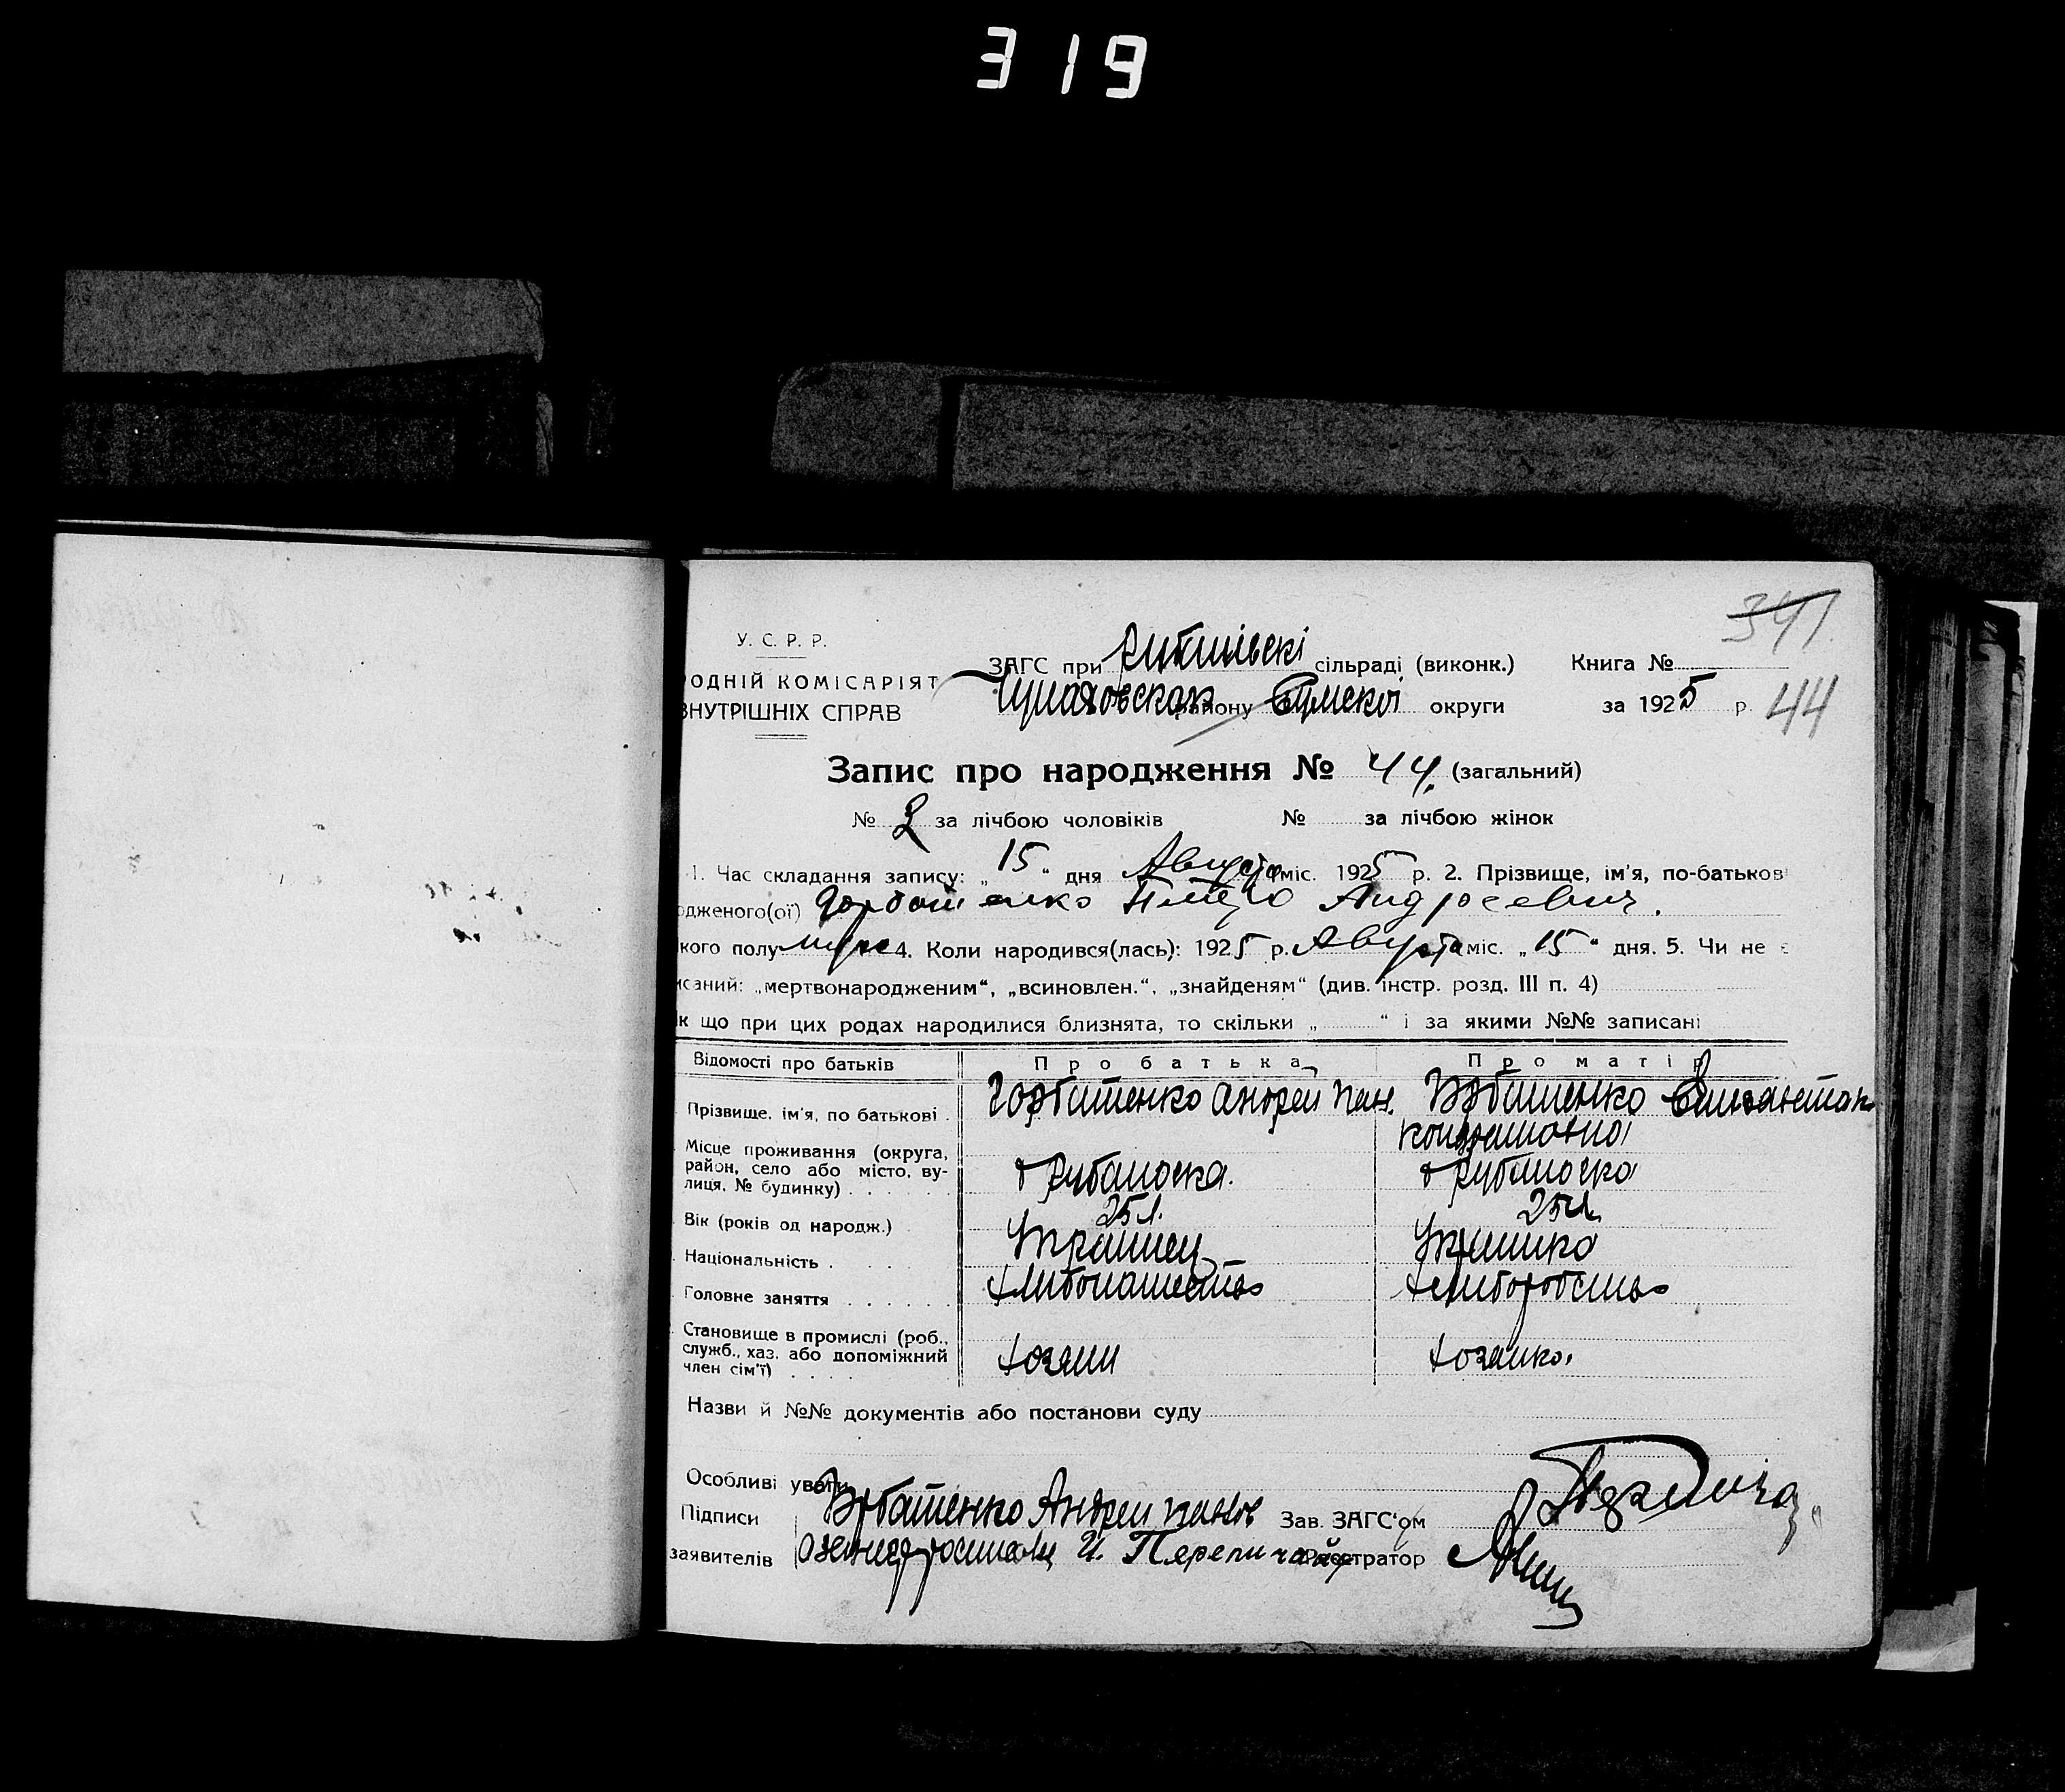 319
341
У. С. Р. Р.
ЗАГС при сільраді (виконк.) Книга №
ОДНІЙ КОМІСАРІЯТ
району Сумскоі округи за 1925 р. 44
ВНУТРІШНІХ СПРАВ
Запис про народження № 44. (загальний)
№ за лічбою чоловіків № за лічбою жінок
1. Час складання запису: „15“ дня Августа міс. 1925 р. 2. Прізвище, ім'я, по-батьков
одженого(ої) Горбатенко Петро Андреевич.
кого полу муж 4. Коли народився(лась): 1925 р. Августа міс. „15“ дня. 5. Чи не є
исаний: „мертвонародженим“, „всиновлен.“, „знайденям“ (див. інстр. розд. III п. 4)
к що при цих родах народилися близнята, то скільки „ “ і за якими №№ записані
Відомості про батьків Про батька Про матір
Прізвище, ім'я, по батькові . Горбатенко Андреи Горбатенко
Місце проживання (округа,
район, село або місто, ву-
лиця, № будинку) . . . . . .
Вік (років од народж.) 25 л. 25 л.
Національність . Украинец Украинка
Головне заняття . . . . . . хлебопашество
Становище в промислі (роб.,
служб., хаз. або допоміжний
член сім'ї) . . . . хозяин хозяика
Назви й №№ документів або постанови суду
Особливі уваги
Підписи Горбатенко Андреи Зав. ЗАГС'ом
заявителів И. Реєстратор